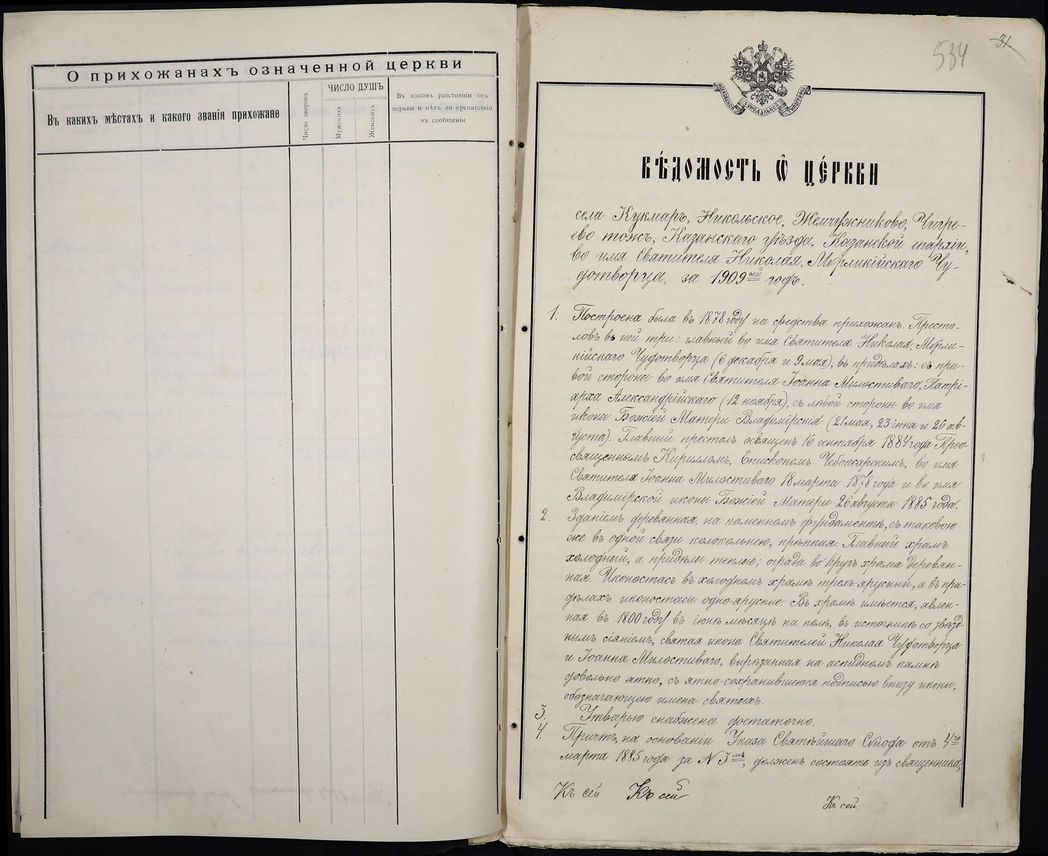 О прихожанахъ означенной церкви
Въ какихъ мѣстахъ и какого званія прихожане
Число дворовъ
ЧИСЛО ДУШЪ
Мужскихъ
Женскихъ
Въ какомъ разстояніи отъ
церкви и нѣтъ ли препятствій
въ сообщеніи
534
31
ВѢДОМОСТЬ Ѿ ЦЕРКВИ
села Кукмаръ, Никольское, Жемчужниково, Чигре-
ево тожъ, Казанскаго уѣзда, Казанской епархіи,
во имя Святителя Николая, Мѵрликійскаго Чу-
дотворца, за 1909ый годъ.
1. Построена была въ 1878 году на средства прихожан. Престо-
ловъ въ ней три: главный во имя Святителя Николая, Мѵрли-
кійскаго Чудотворца (6 декабря и 9 мая), въ придѣлахъ: съ пра-
вой стороны во имя Святителя Іоанна Милостиваго, Патрі-
арха Александрійскаго (12 ноября), съ лѣвой стороны во имя
иконы Божіей Матери Владимірскія (21 мая, 23 іюня и 26 ав-
густа). Главный престолъ освященъ 16 сентября 1884 года Прео-
священнымъ Кирилломъ, Епископомъ Чебоксарскимъ, во имя
Святителя Іоанна Милостиваго 18 марта года и во имя
Владимірской иконы Божіей Матери 26 августа 1885 года.
2. Зданіемъ деревянная, на каменномъ фундаментѣ, съ таковою
же въ одной связи колокольнею, крѣпкая. Главный храмъ
холодный, а придѣлы теплые; ограда вокругъ храма деревян-
ная. Иконостасъ въ холодномъ храмѣ трехъ-ярусный, а въ при-
дѣлахъ иконостасы одно-ярусные. Въ храмѣ имѣется, явлен-
ная въ 1800 году въ іюнѣ мѣсяцѣ на полѣ, въ источникѣ со звѣзд-
нымъ сіяніемъ, святая икона Святителей Николая Чудотворца
и Іоанна Милостиваго, вырѣзанная на аспидномъ камнѣ
довольно ятно, съ ятно-сохранившеюся подписью внизу иконы,
обозначающею имена святыхъ.
3. Утварью снабжена достаточно.
4 Причтъ, на основаніи Указа Святѣйшаго Сѵнода отъ 4го
марта 1885 года за № 3мъ, долженъ состоять изъ священника,
Къ сей Къ сей Къ сей